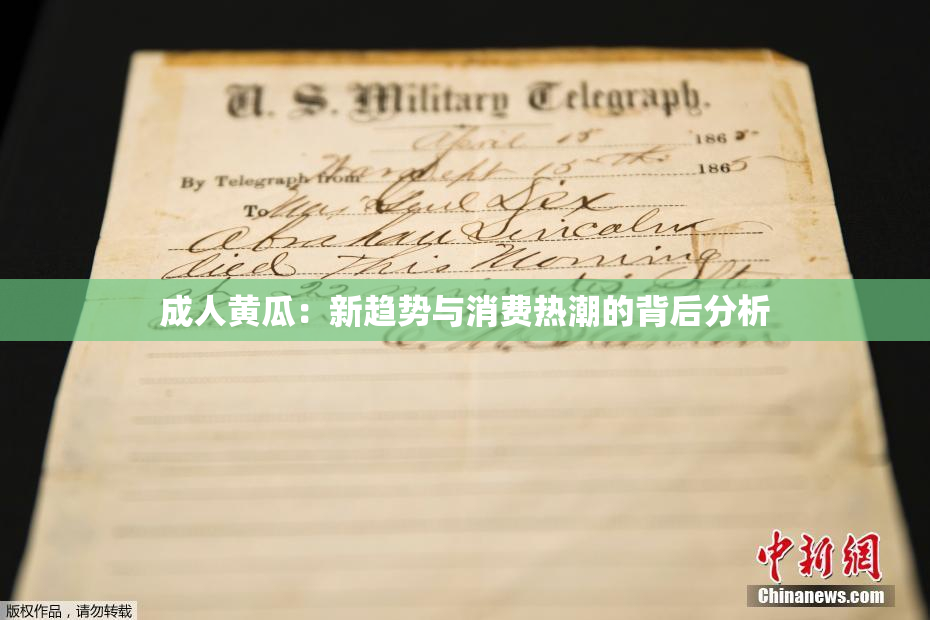 U. S. Military Telegraph.
April 15 1865
By Telegraph from War Dept 15th 1865
To Maj Genl Dix
Abraham Lincoln
died This Morning
at 22 minutes after
成人黄瓜：新趋势与消费热潮的背后分析
E. M. Stanton
版权作品，请勿转载
中新网
Chinanews.com